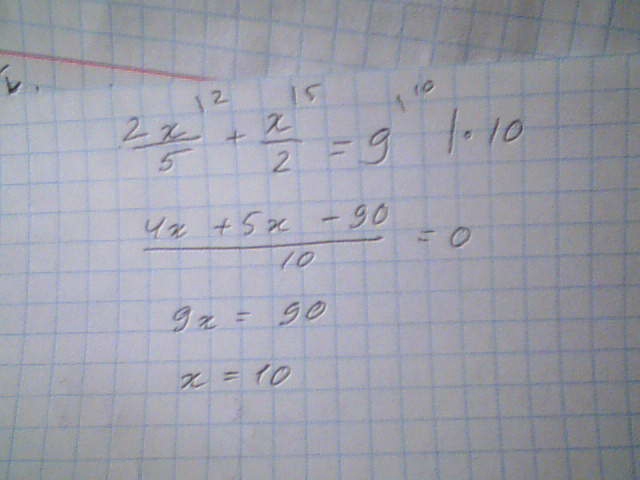 2x/5 \2 + x/2 \5 = 9 \10 | · 10
(4x + 5x - 90)/10 = 0
9x = 90
x = 10